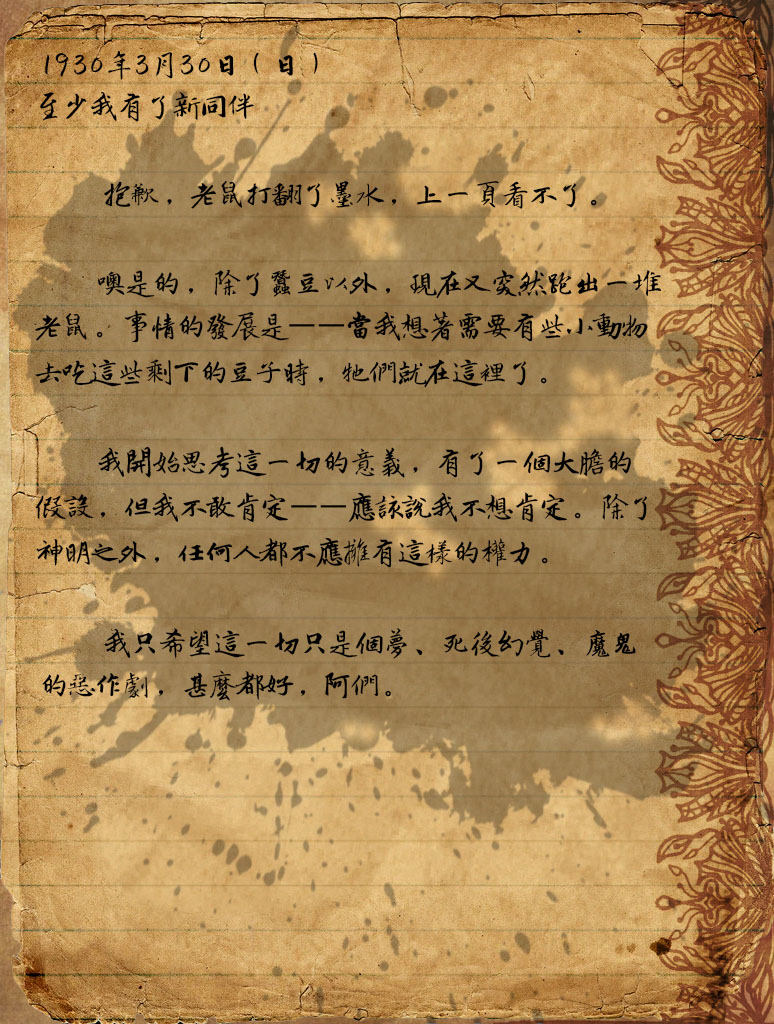 1930年3月30日(日)
至少我有了新同伴
抱歉，老鼠打翻了墨水，上一頁看不了。
噢是的，除了蠶豆以外，現在又突然跑出一堆
老鼠。事情的發展是——當我想著需要有些小動物
去吃這些剩下的豆子時，牠們就在這裡了。
我開始思考這一切的意義，有了一個大膽的
假設，但我不敢肯定——應該說我不想肯定。除了
神明之外，任何人都不應擁有這樣的權力。
我只希望這一切只是個夢、死後幻覺、魔鬼
的惡作劇，甚麼都好，阿們。